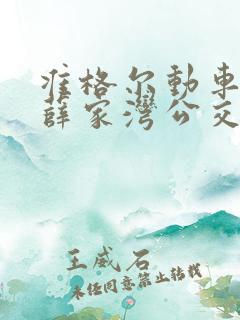 准格尔动车
薛家湾公交
王威石
未经同意禁止转载